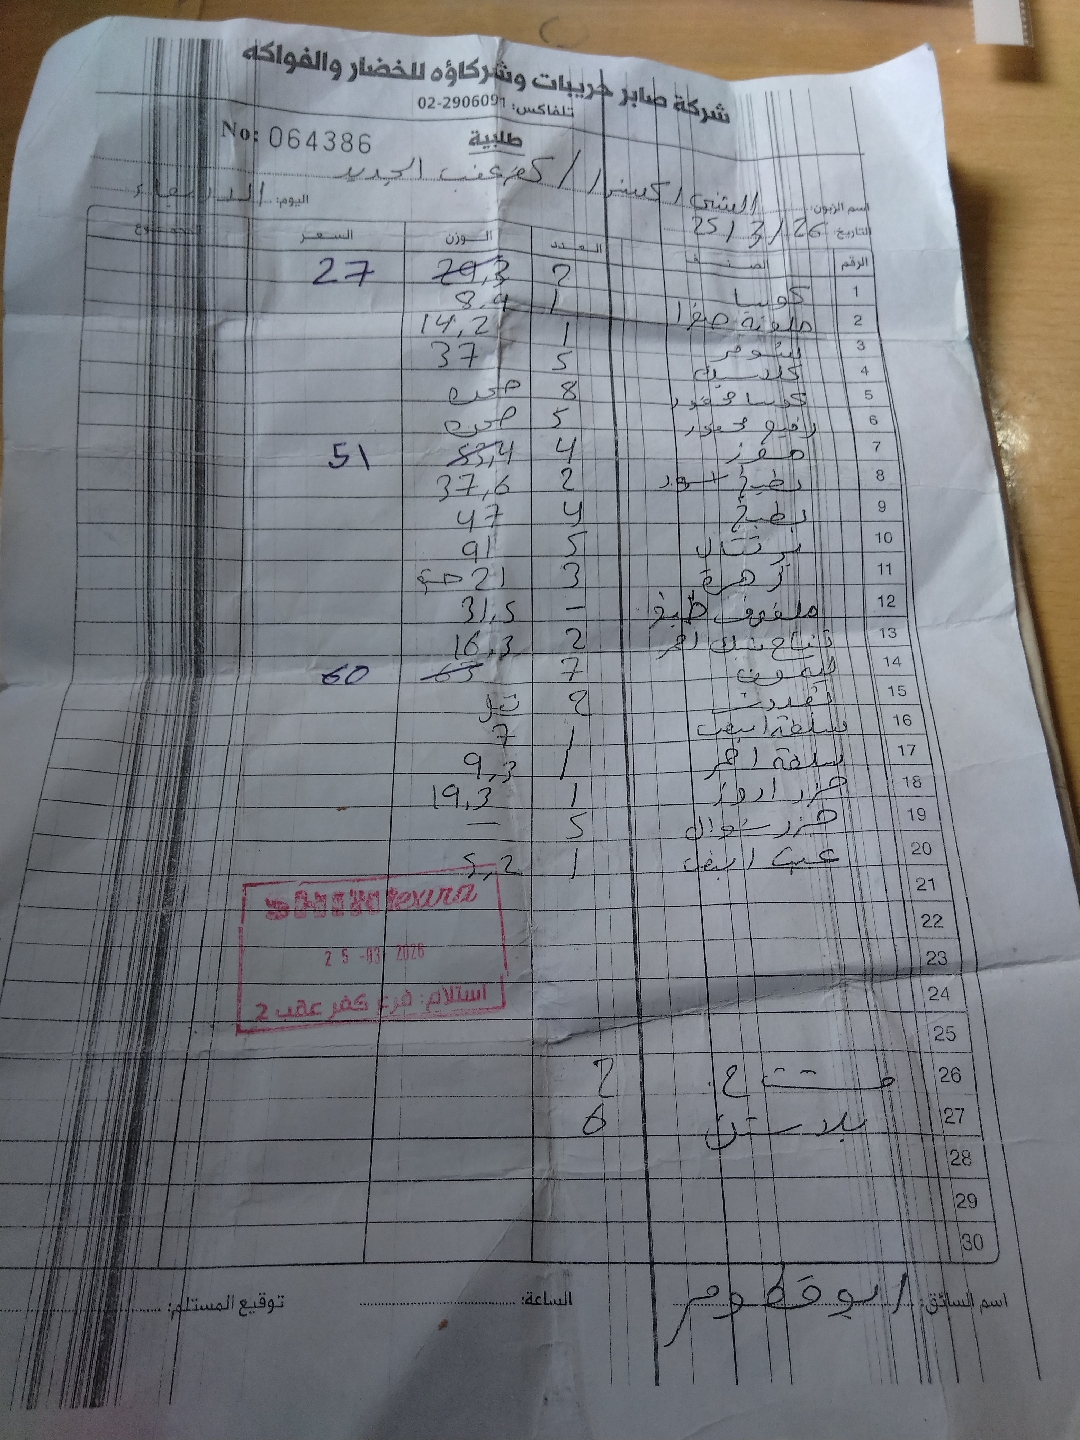 شركة صابر حريبات وشركاؤه للخضار والفواكه
تلفاكس: 02-2906091
طلبية
No: 064386
اسم الزبون: الشني اكسترا / كفر عقب الجديد
التاريخ: 25/3/26 اليوم: الاربعاء
الرقم الصنف العدد الوزن السعر المجموع
1 كوسا 2 29,3 27
2 ملفوف صفرا 1 8,9
3 شومر 1 14,2
4 كلاسيك 5 37
5 كوسا محفور 8 صحن
6 محفور 5 صحن
7 4 53,4 51
8 بطيخ اسود 2 37,6
9 بطيخ 4 47
10 برتقال 5 91
11 زهرة 3 21
12 ملفوف طبخ - 31,5
13 تفاح احمر 2 16,3
14 ليمون 7 63 60
15 2
16 ابيض 1 7
17 احمر 1 9,3
18 جزر 1 19,3
19 جزر شوال 5 —
20 عنب ابيض 1 5,2
21
extra
22
25-03-2026
23
استلام: فرع كفر عقب 2
24
25
26 مشتاح 2
27 بلاستيك 6
28
29
30
اسم السائق: ابو قطوم الساعة: توقيع المستلم: